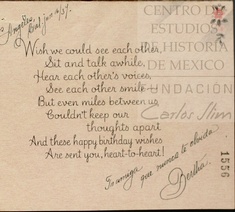 CENTRO DE
ESTUDIOS
DE HISTORIA
DE MEXICO
FUNDACIÓN
Carlos Slim
Wish we could see each other,
Sit and talk awhile,
Hear each other's voices,
See each other smile
But even miles between us
Couldn't keep our
thoughts apart
And these happy birthday wishes
Are sent you, heart-to-heart!
Tu amiga
que nunca te olvida
Bertha.
1556